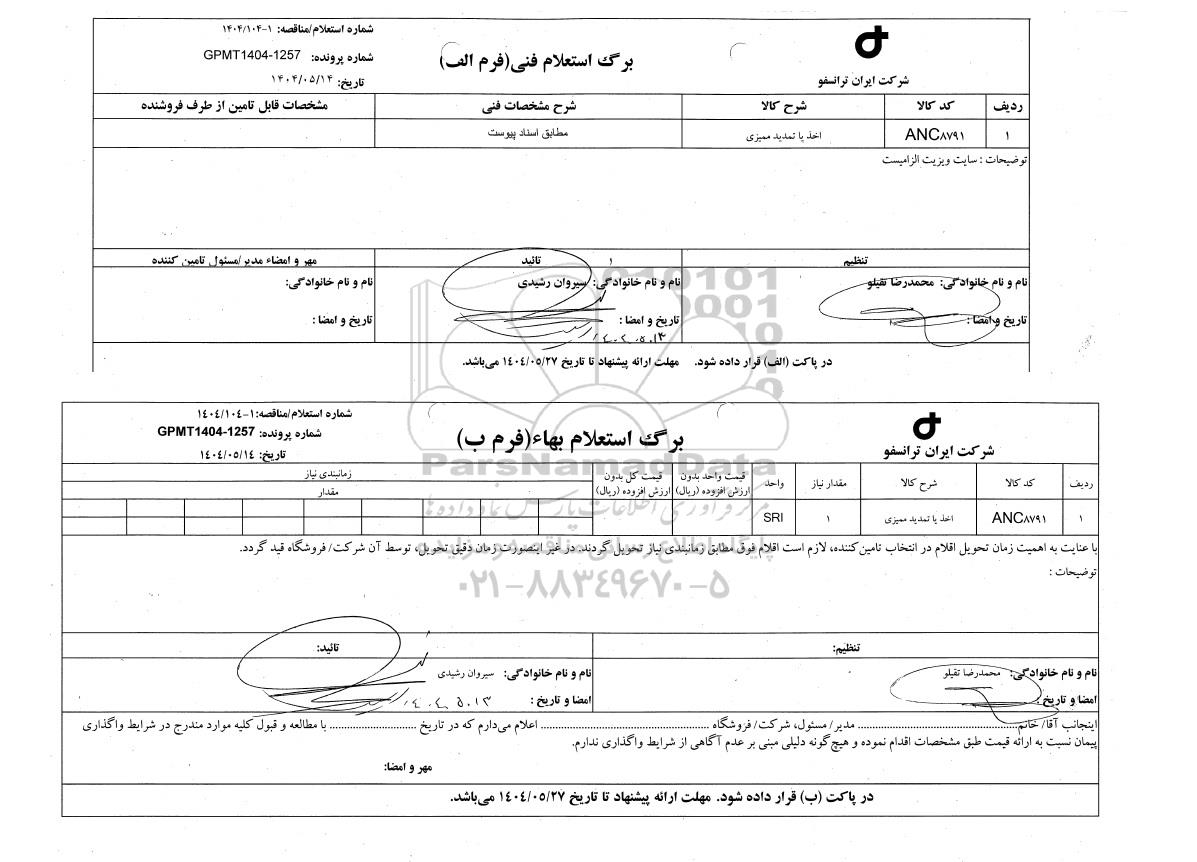 شماره استعلام/مناقصه: ۱-۱۴۰۴/۱۰۴
برگ استعلام فنی(فرم الف)
شماره پرونده: GPMT1404-1257
شرکت ایران ترانسفو
تاریخ: ۱۴۰۴/۰۵/۱۴
ردیف کد کالا شرح کالا شرح مشخصات فنی مشخصات قابل تامین از طرف فروشنده
۱ ANC۸۷۹۱ اخذ یا تمدید ممیزی مطابق اسناد پیوست
توضیحات : سایت ویزیت الزامیست
تنظیم تائید مهر و امضاء مدیر/مسئول تامین کننده
نام و نام خانوادگی: محمدرضا تقیلو نام و نام خانوادگی: سیروان رشیدی نام و نام خانوادگی:
تاریخ و امضا : تاریخ و امضا : تاریخ و امضا :
در پاکت (الف) قرار داده شود. مهلت ارائه پیشنهاد تا تاریخ ۱۴۰۴/۰۵/۲۷ می‌باشد.
شماره استعلام/مناقصه:۱-۱۴۰۴/۱۰۴
برگ استعلام بهاء(فرم ب)
شماره پرونده: GPMT1404-1257
شرکت ایران ترانسفو
تاریخ: ۱۴۰۴/۰۵/۱۴
ParsNamadData
ردیف کد کالا شرح کالا مقدار نیاز واحد قیمت واحد بدون ارزش افزوده (ریال) قیمت کل بدون ارزش افزوده (ریال) زمانبندی نیاز
مقدار
۱ ANC۸۷۹۱ اخذ یا تمدید ممیزی ۱ SRI
با عنایت به اهمیت زمان تحویل اقلام در انتخاب تامین‌کننده، لازم است اقلام فوق مطابق زمانبندی نیاز تحویل گردند. در غیر اینصورت زمان دقیق تحویل، توسط آن شرکت/ فروشگاه قید گردد.
توضیحات :
۰۲۱-۸۸۳۴۹۶۷۰-۵
تنظیم: تائید:
نام و نام خانوادگی: محمدرضا تقیلو نام و نام خانوادگی: سیروان رشیدی
امضا و تاریخ : امضا و تاریخ :
اینجانب آقا/ خانم مدیر/ مسئول، شرکت/ فروشگاه اعلام می‌دارم که در تاریخ با مطالعه و قبول کلیه موارد مندرج در شرایط واگذاری
پیمان نسبت به ارائه قیمت طبق مشخصات اقدام نموده و هیچ‌گونه دلیلی مبنی بر عدم آگاهی از شرایط واگذاری ندارم.
مهر و امضا:
در پاکت (ب) قرار داده شود. مهلت ارائه پیشنهاد تا تاریخ ۱۴۰۴/۰۵/۲۷ می‌باشد.